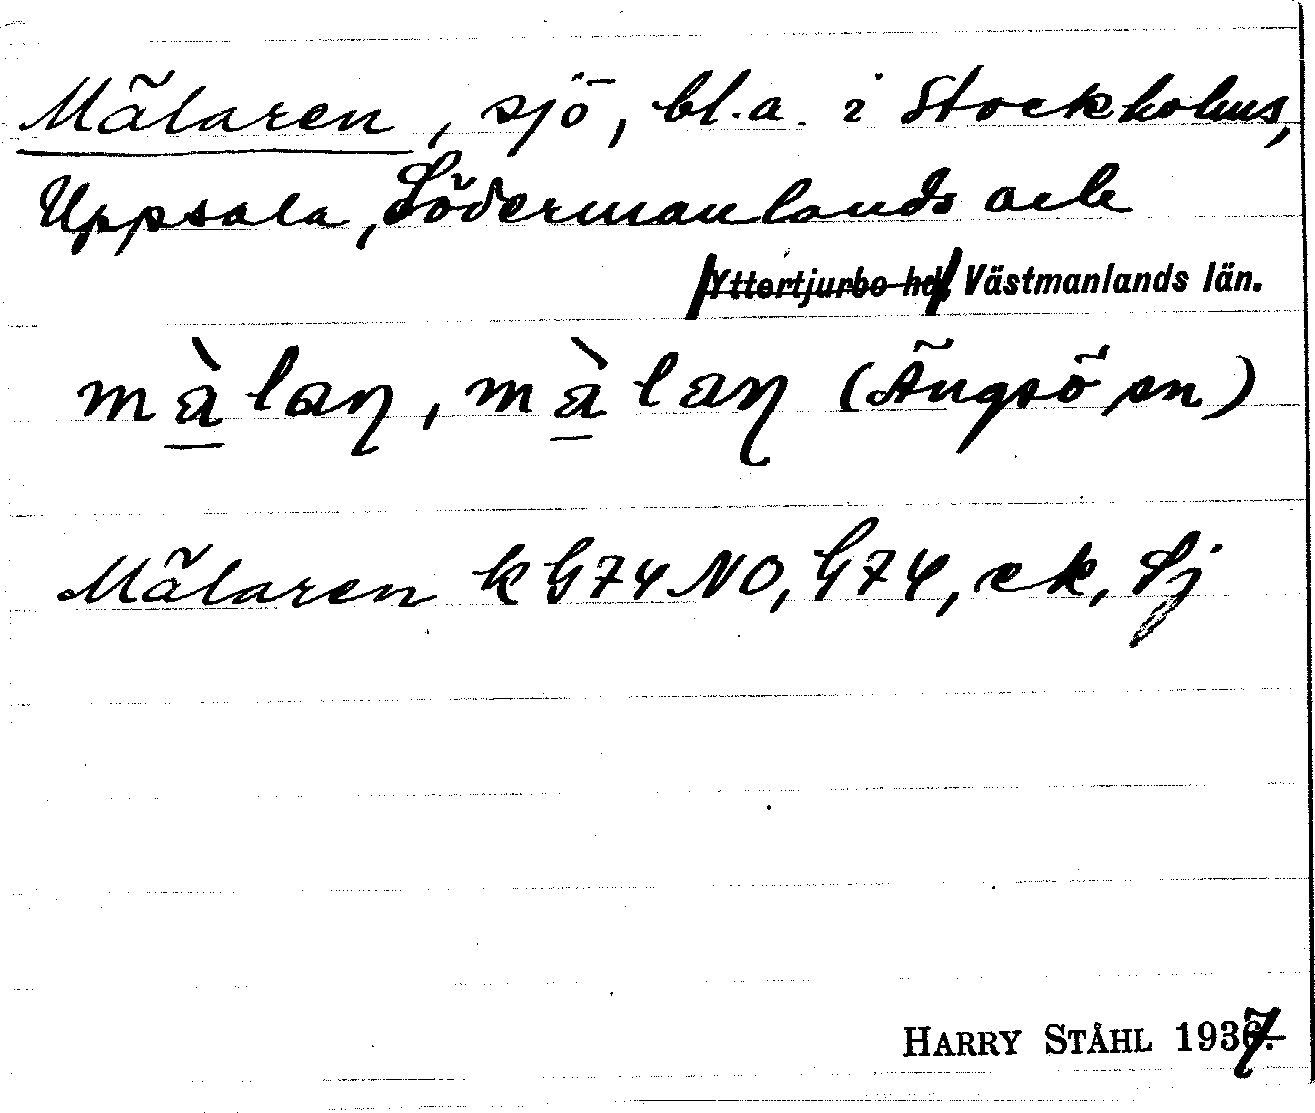 Mälaren, sjö, bl.a. i Stockholms,
Uppsala, Södermanlands och
Yttertjurbo hd, Västmanlands län.
mà̱laņ, mà̱laņ (Ängsö sn)
Mälaren k G74 NO, G74, ek, Sj
HARRY STÅHL 1937